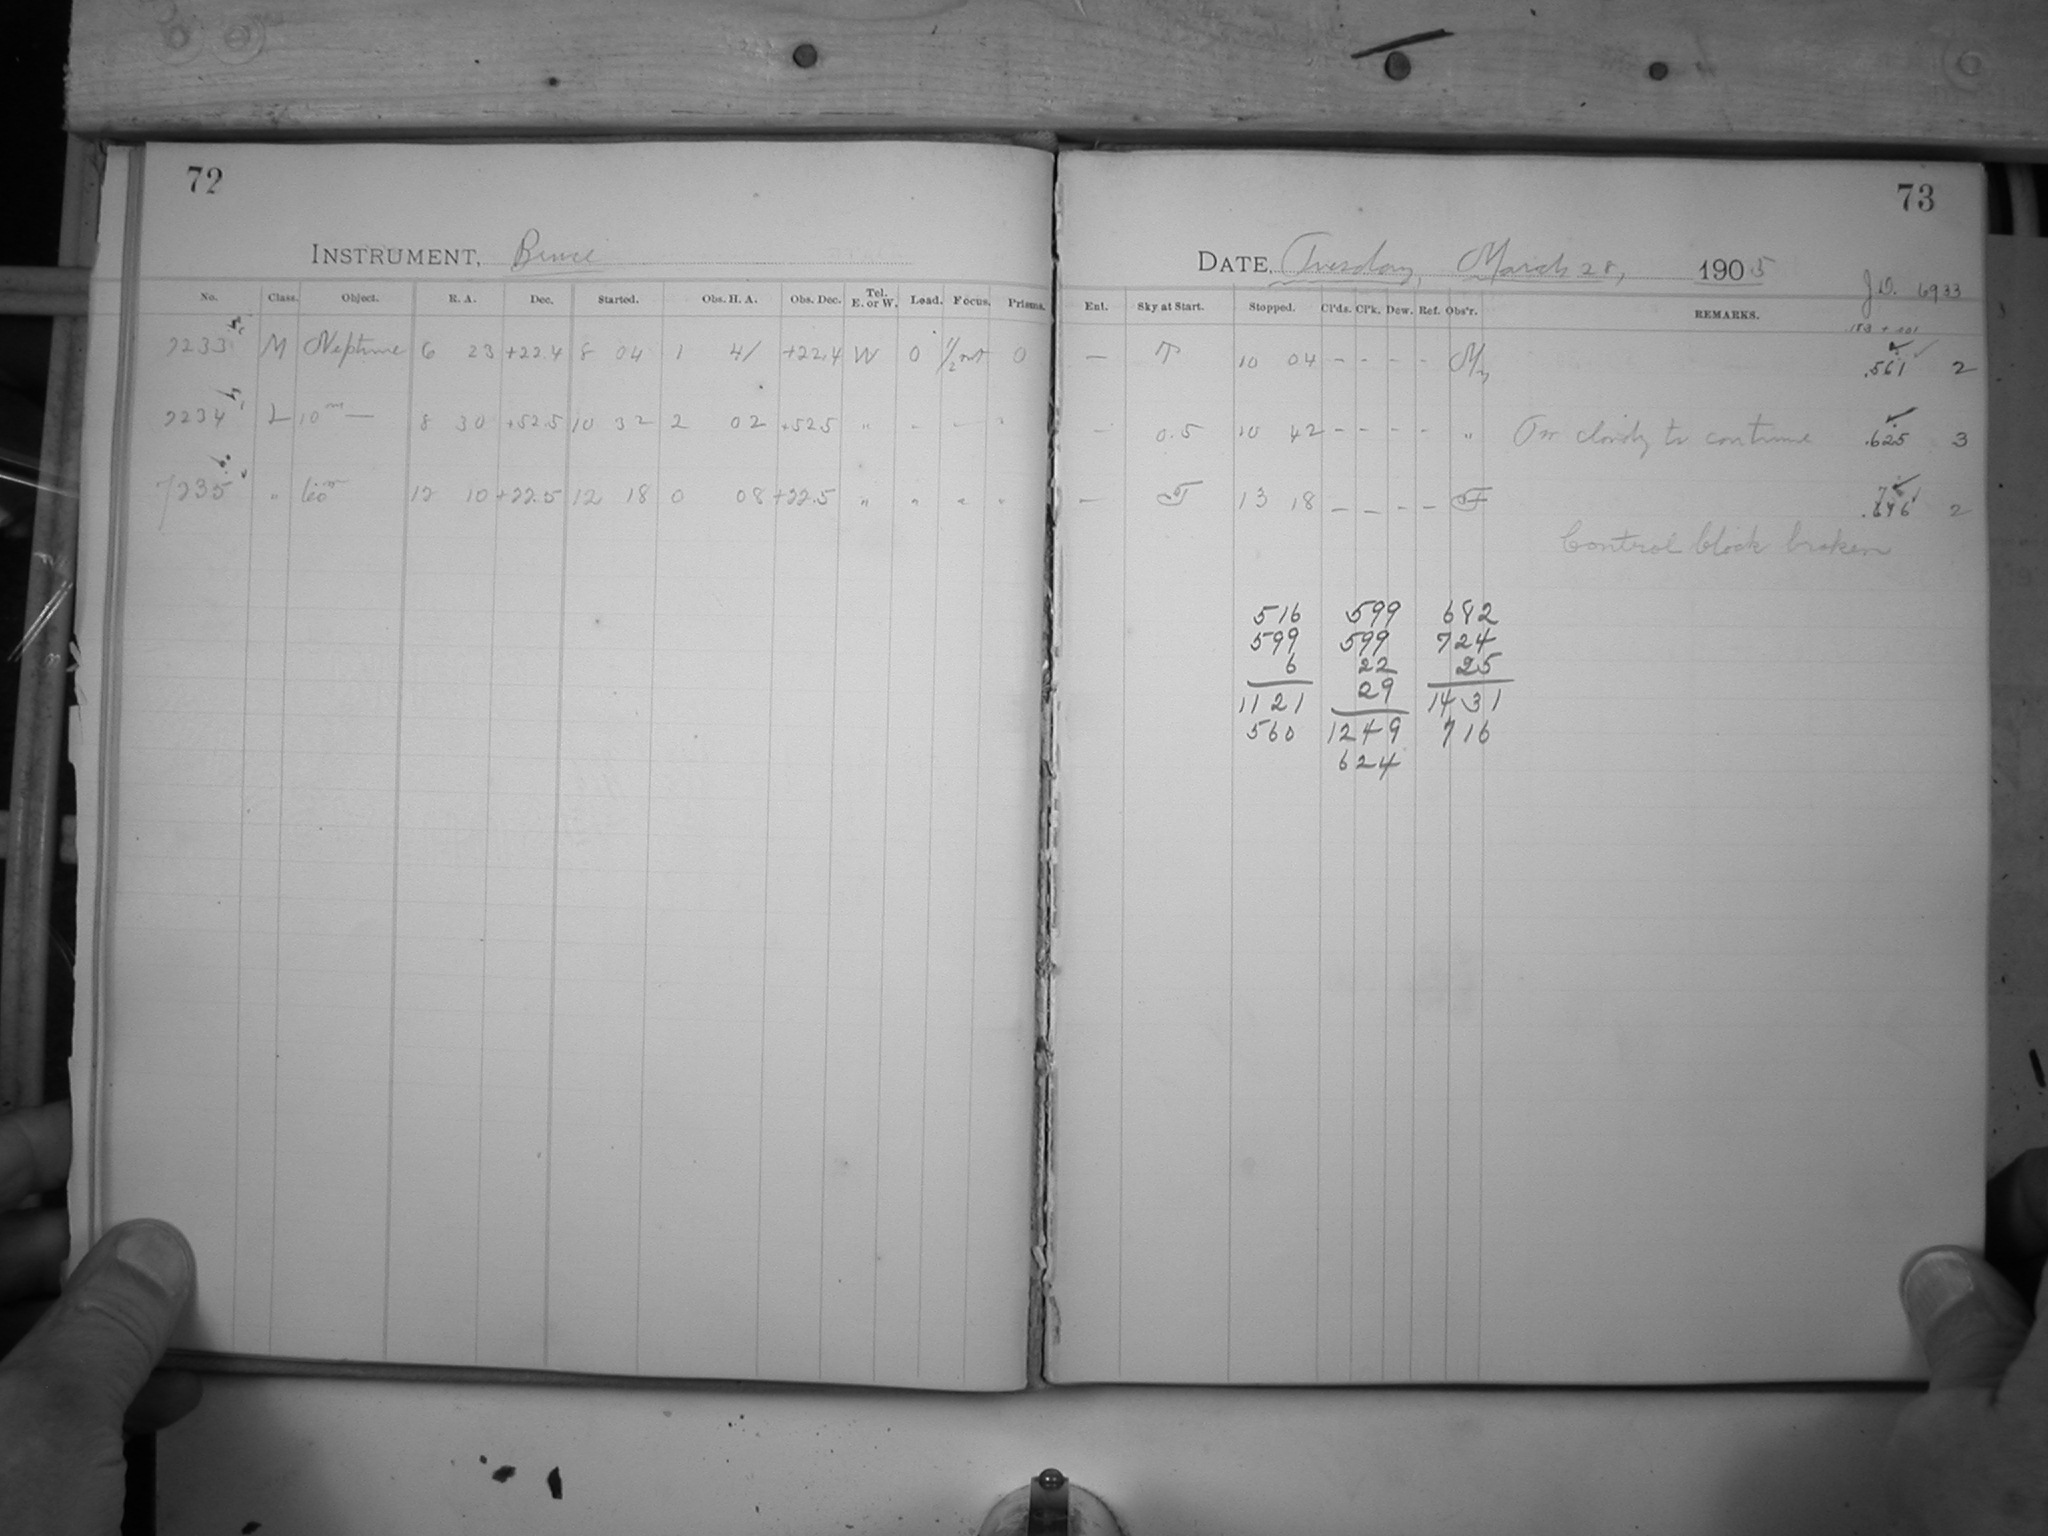 72
INSTRUMENT, Bruce
No. Class. Object. R. A. Dec. Started. Obs. H. A. Obs. Dec. Tel. E. or W. Lead. Focus. Prisms.
7233 M Neptune 6 23 +22.4 8 04 1 41 +22.4 W 0 0
7234 L 10m — 8 30 +52.5 10 32 2 02 +52.5 " " — "
7235 " 12 10 +22.5 12 18 0 08 +22.5 " " " "
73
DATE, Tuesday, March 28, 1905
J.D. 6933
Ent. Sky at Start. Stopped. Cl'ds. Cl'k. Dew. Ref. Obs'r. REMARKS.
— 10 04 – – – – .561 2
— 0.5 10 42 – – – – " Too cloudy to continue .625 3
— 13 18 – – – – 2
Control clock broken
516 599 682
599 599 724
6 22 25
29
1121 1249 1431
560 624 716